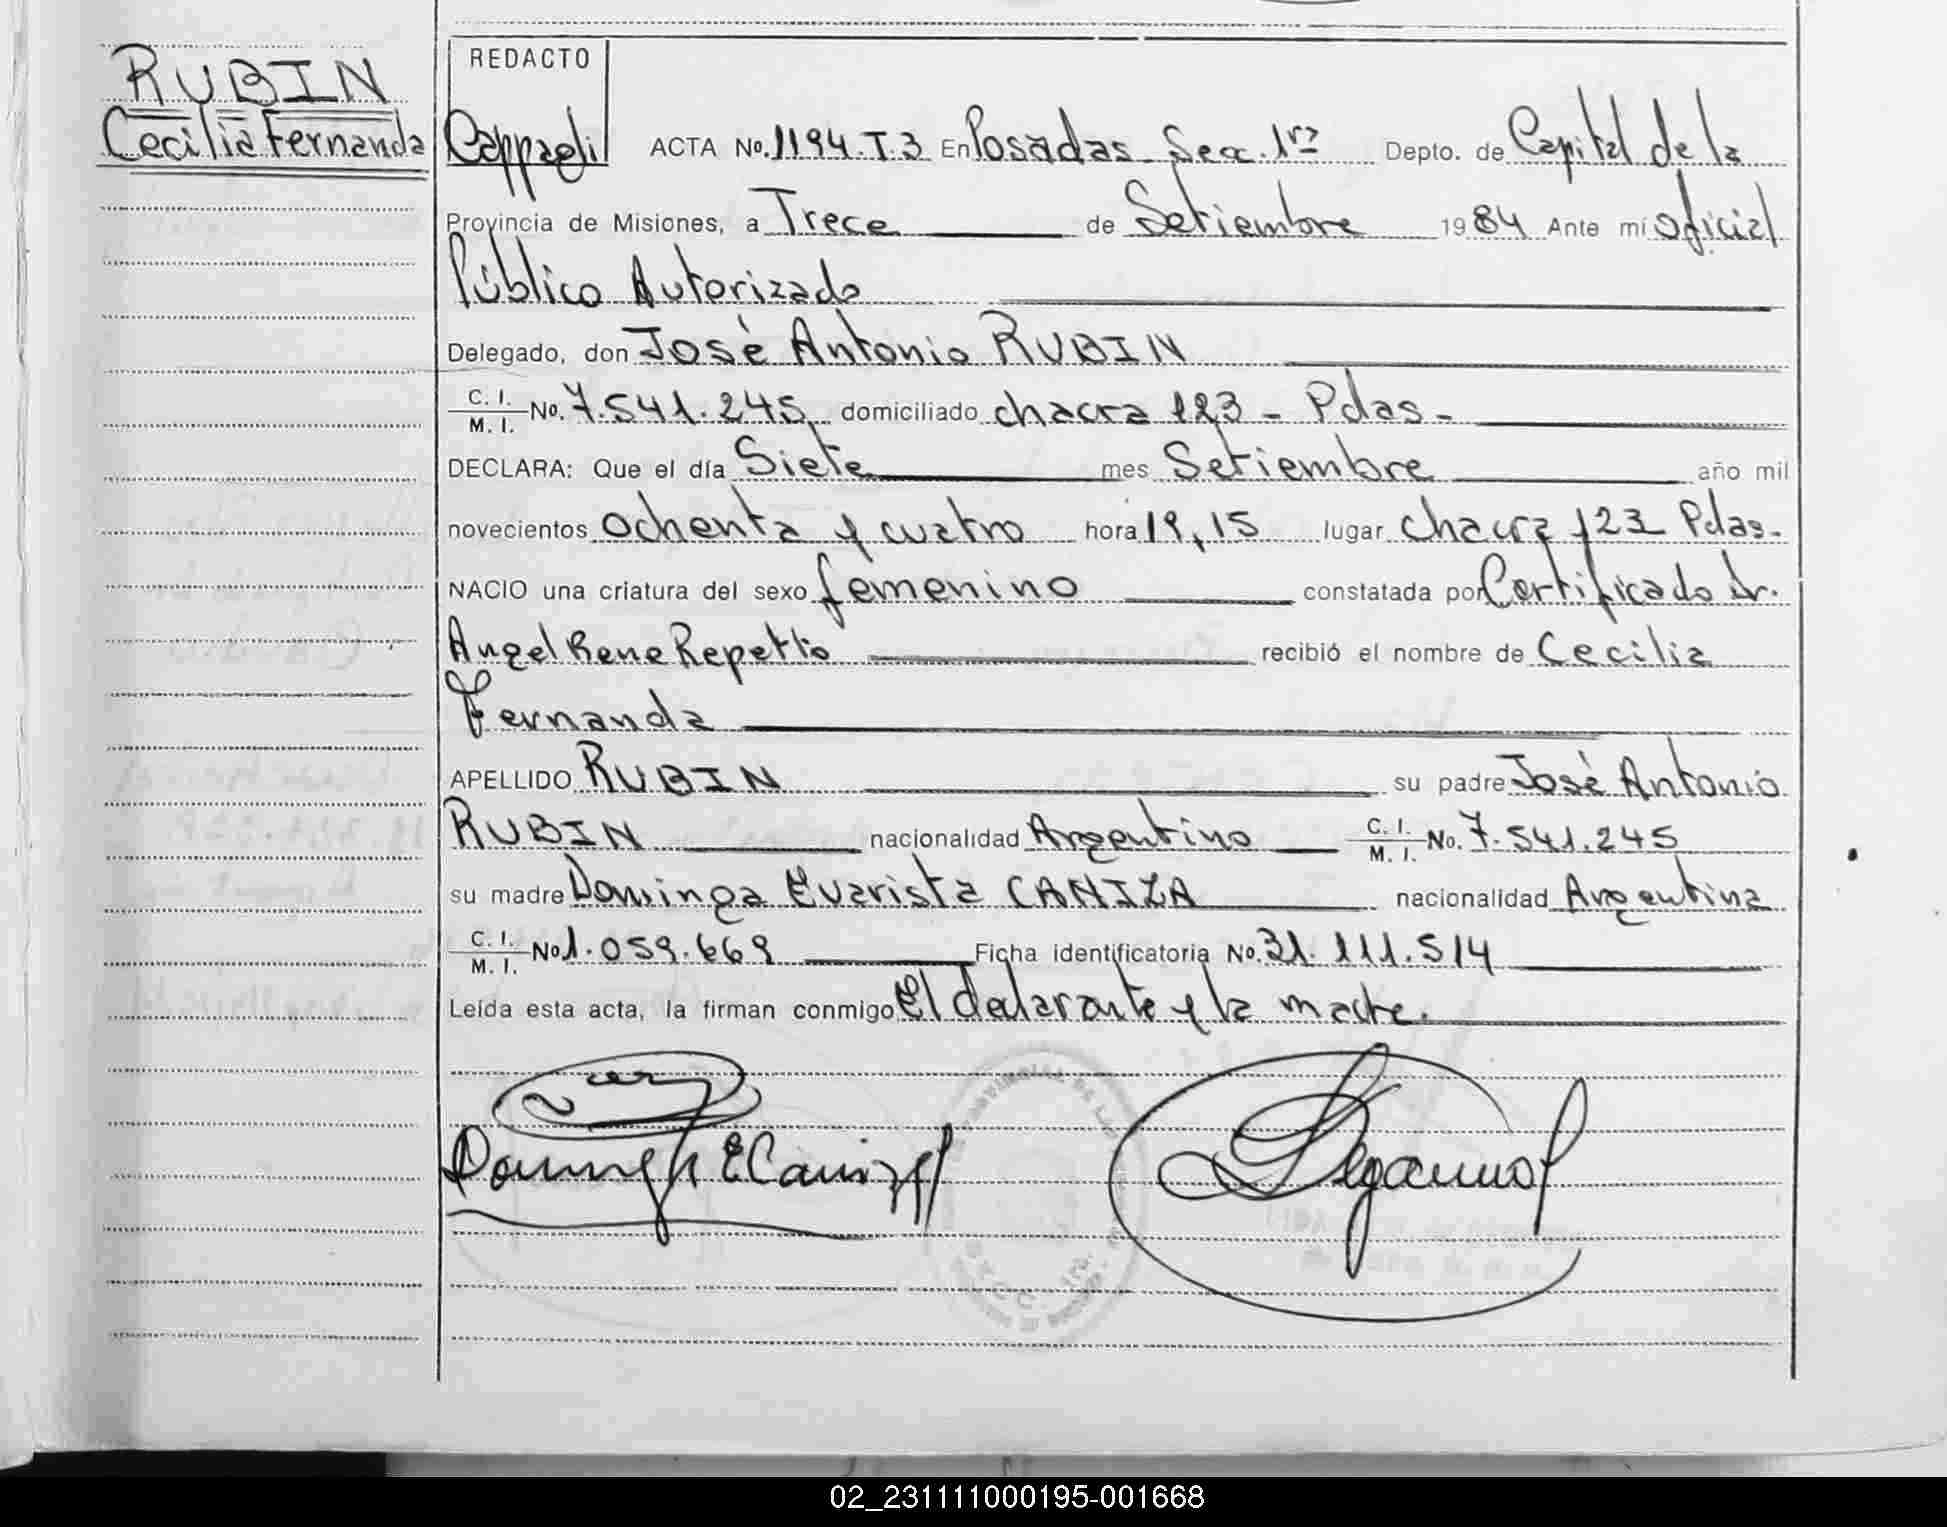 RUBIN
Cecilia Fernanda
REDACTO
ACTA No. 1194.T.3 En Posadas Secc. 1ra Depto. de Capital de la
Provincia de Misiones, a Trece de Setiembre 1984 Ante mí Oficial
Público Autorizado
Delegado, don José Antonio RUBIN
C. I. / M. I. No. 7.541.245 domiciliado chacra 123 - Pdas -
DECLARA: Que el día Siete mes Setiembre año mil
novecientos ochenta y cuatro hora 19,15 lugar chacra 123 Pdas.
NACIO una criatura del sexo femenino constatada por Certificado Dr.
Angel Rene Repetto recibió el nombre de Cecilia
Fernanda
APELLIDO RUBIN su padre José Antonio
RUBIN nacionalidad Argentino C. I. / M. I. No. 7.541.245
su madre Dominga Evarista CANIZA nacionalidad Argentina
C. I. / M. I. No 1.059.669 Ficha identificatoria No. 31.111.514
Leída esta acta, la firman conmigo El declarante y la madre.
02_231111000195-001668